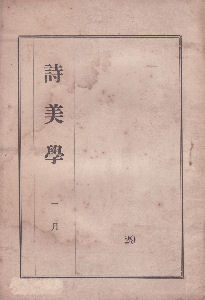 詩美學
一月
29